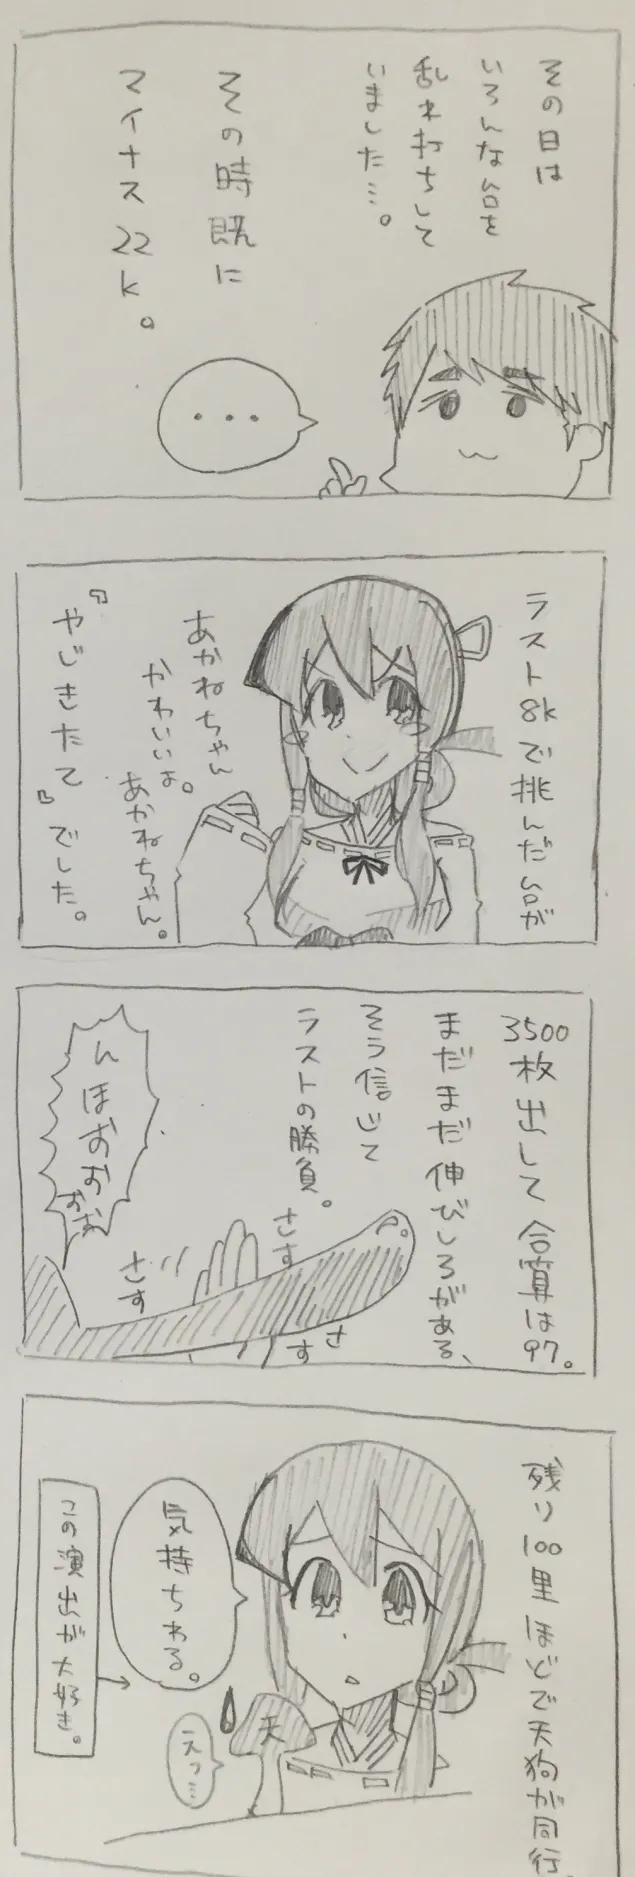 その日は
いろんな台を
乱れ打ちして
いました…。
その時既に
マイナス22k。
…
ラスト8kで挑んだ台が
あかねちゃん
かわいいよ。
あかねちゃん。
『やじきたて』でした。
3500枚出して合算は97。
まだまだ伸びしろがある、
そう信じて
ラストの勝負。
さす
さす
さす
んほおおおお
残り100里ほどで天狗が同行。
気持ちわる。
天
えっ…
この演出が大好き。